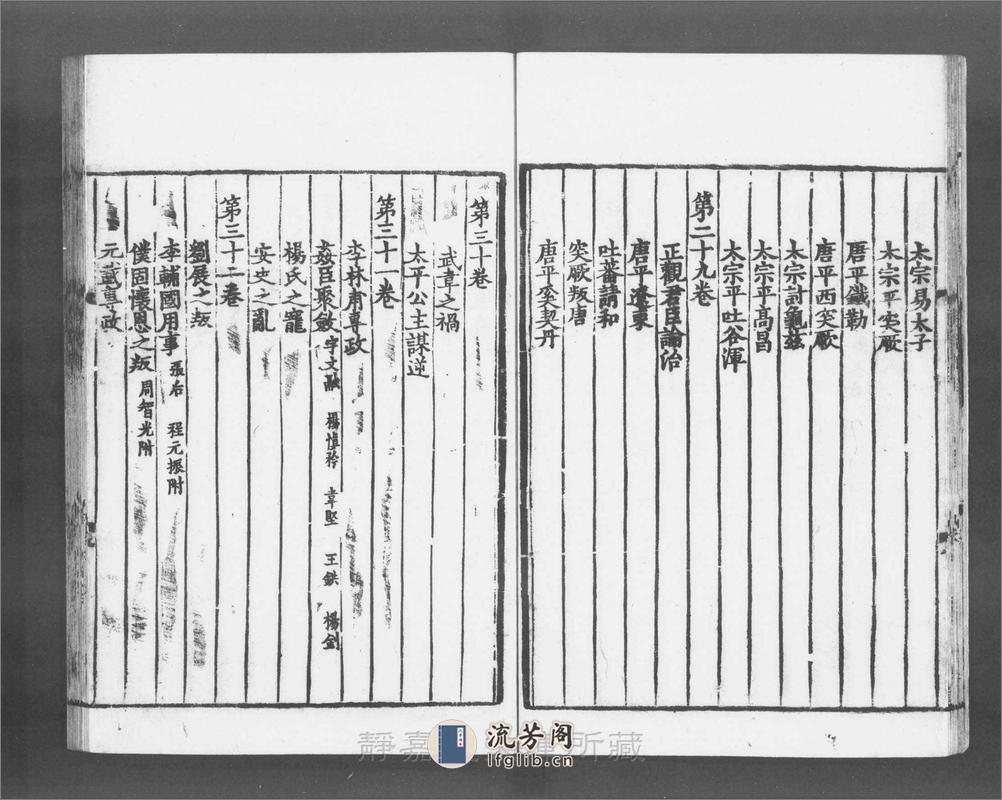 太宗易太子
太宗平突厥
唐平鐵勒
唐平西突厥
太宗討龜茲
太宗平高昌
太宗平吐谷渾
第二十九卷
正觀君臣論治
唐平遼東
吐蕃請和
突厥叛唐
唐平奚契丹
第三十卷
武韋之禍
太平公主謀逆
第三十一卷
李林甫專政
姦臣聚斂 宇文融 楊慎矜 韋堅 王鉷 楊釗
楊氏之寵
安史之亂
第三十二卷
劉展之叛
李輔國用事 張后 程元振附
僕固懷恩之叛 周智光附
元載專政
靜嘉
所藏
流芳阁
lfglib.cn